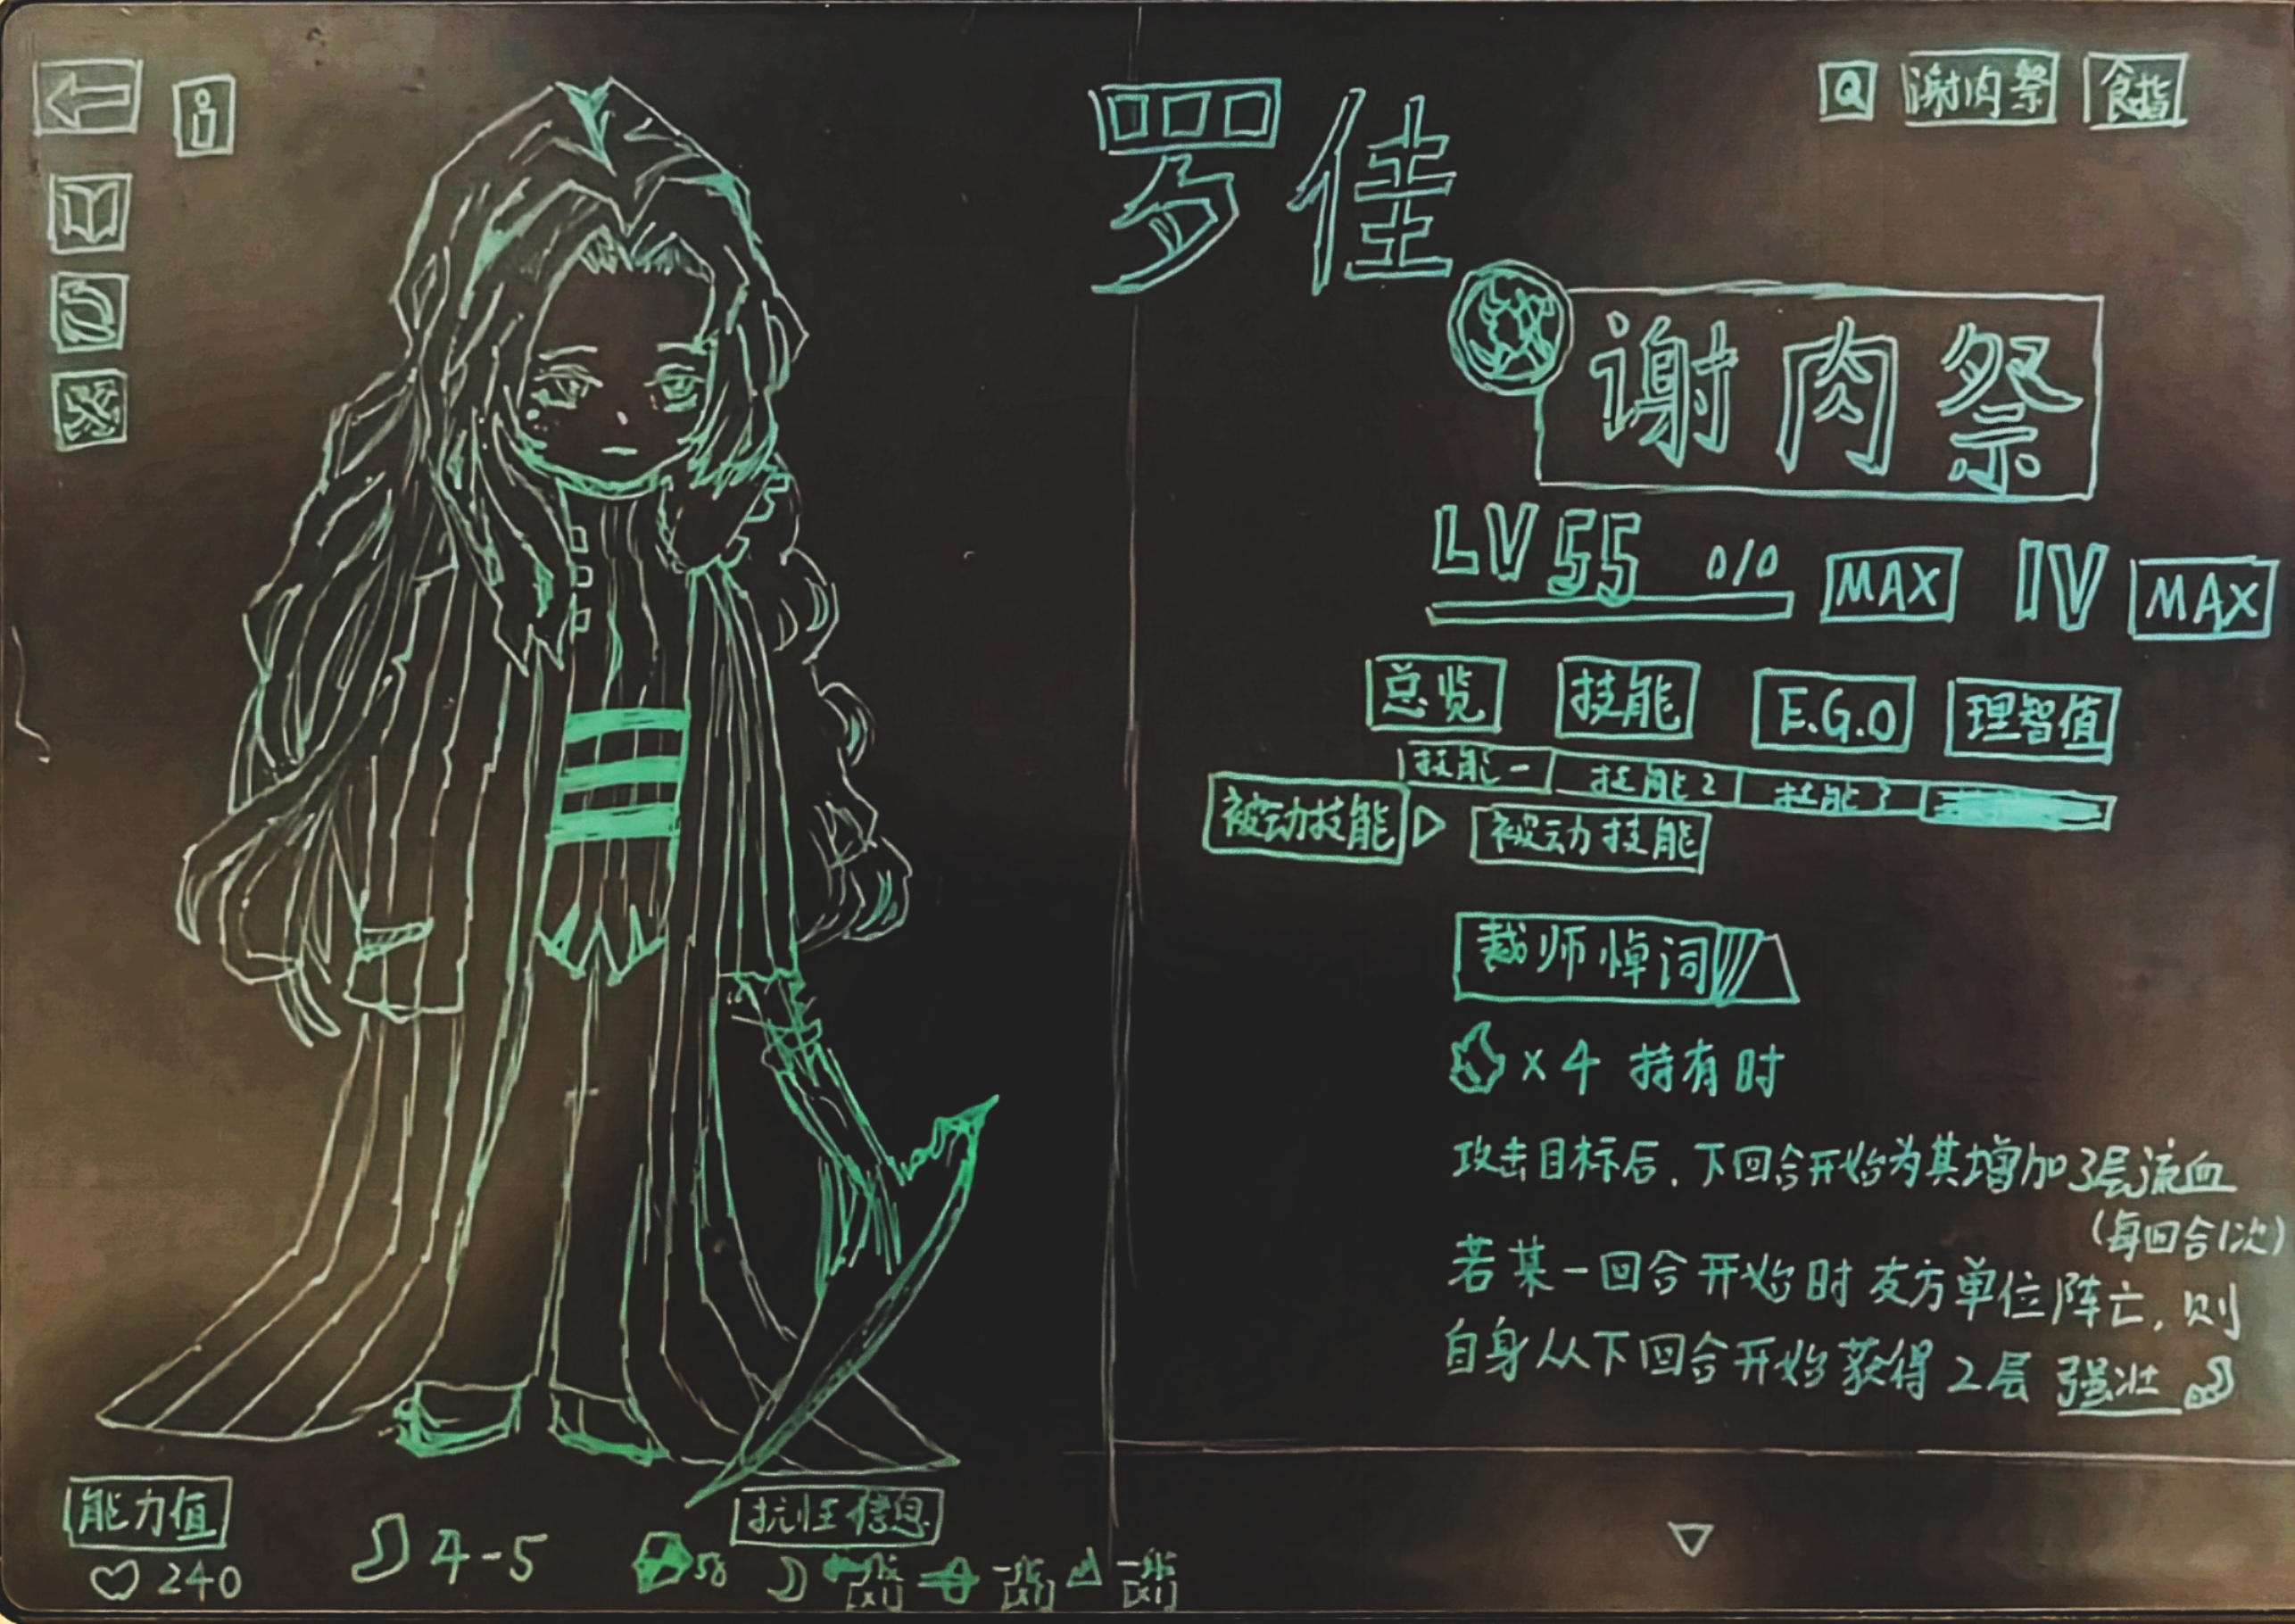 罗佳
Q 谢肉祭 食指
谢肉祭
LV 55 0/0 MAX IV MAX
总览 技能 E.G.O 理智值
技能一 技能2 技能3
被动技能 ▷ 被动技能
裁师悼词
×4 持有时
攻击目标后，下回合开始为其增加3层流血
(每回合1次)
若某一回合开始时友方单位阵亡，则
自身从下回合开始获得2层 强壮
能力值
240
4-5
58
抗性信息
一般
[×1]
一般
[×1]
一般
[×1]